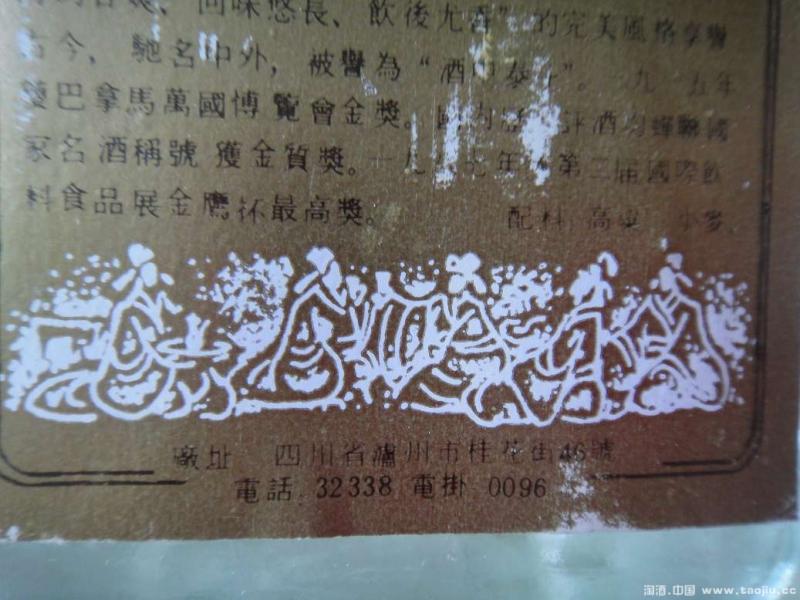 回味悠長、飲後尤香”的完美風格享譽
古今，馳名中外，被譽為“酒中泰斗”。九五年
獲巴拿馬萬國博覽會金獎。國內評酒均蟬聯國
家名酒稱號 獲金質獎。一九八七年第二届國際飲
料食品展金鷹杯最高獎。 配料 高粱 小麥
廠址 四川省瀘州市桂花街46號
電話 32338 電掛 0096
淘酒.中国 www.taojiu.cc